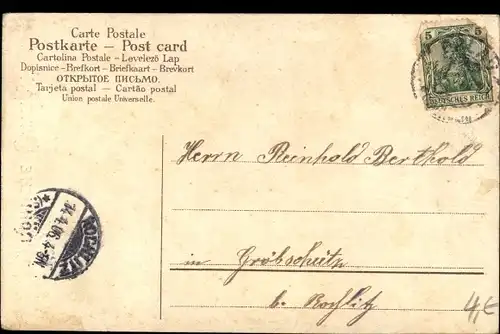 Carte Postale
Postkarte — Post card
Cartolina Postale – Levelező Lap
Dopisnice – Brefkort – Briefkaart – Brevkort
ОТКРЫТОЕ ПИСЬМО.
Tarjeta postal — Cartão postal
Union postale Universelle.
5 5
DEUTSCHES REICH
Herrn Reinhold Berthold
ROCHLITZ
in Gröbschütz
b. Rochlitz
4,€